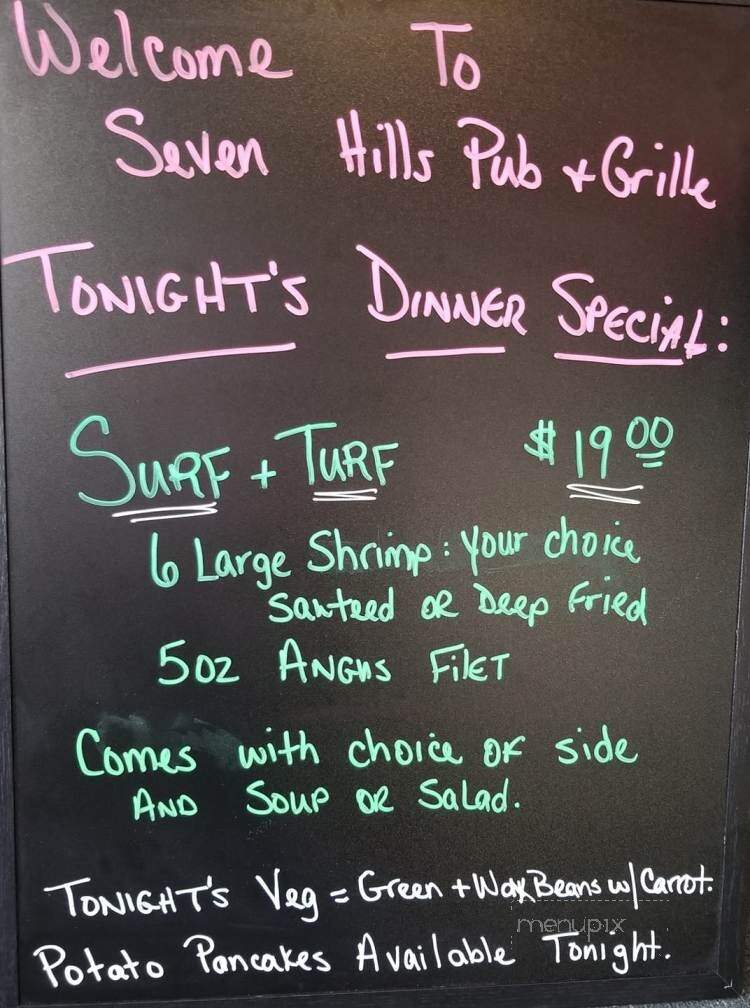 Welcome To
Seven Hills Pub + Grille
TONIGHT'S DINNER SPECIAL:
SURF + TURF $19.00
6 Large Shrimp : Your choice
Sauteed OR Deep Fried
5oz ANGUS FILET
Comes with choice of side
AND Soup OR Salad.
TONIGHT'S Veg = Green + Wax Beans w/ Carrot.
menupix
Potato Pancakes Available Tonight.